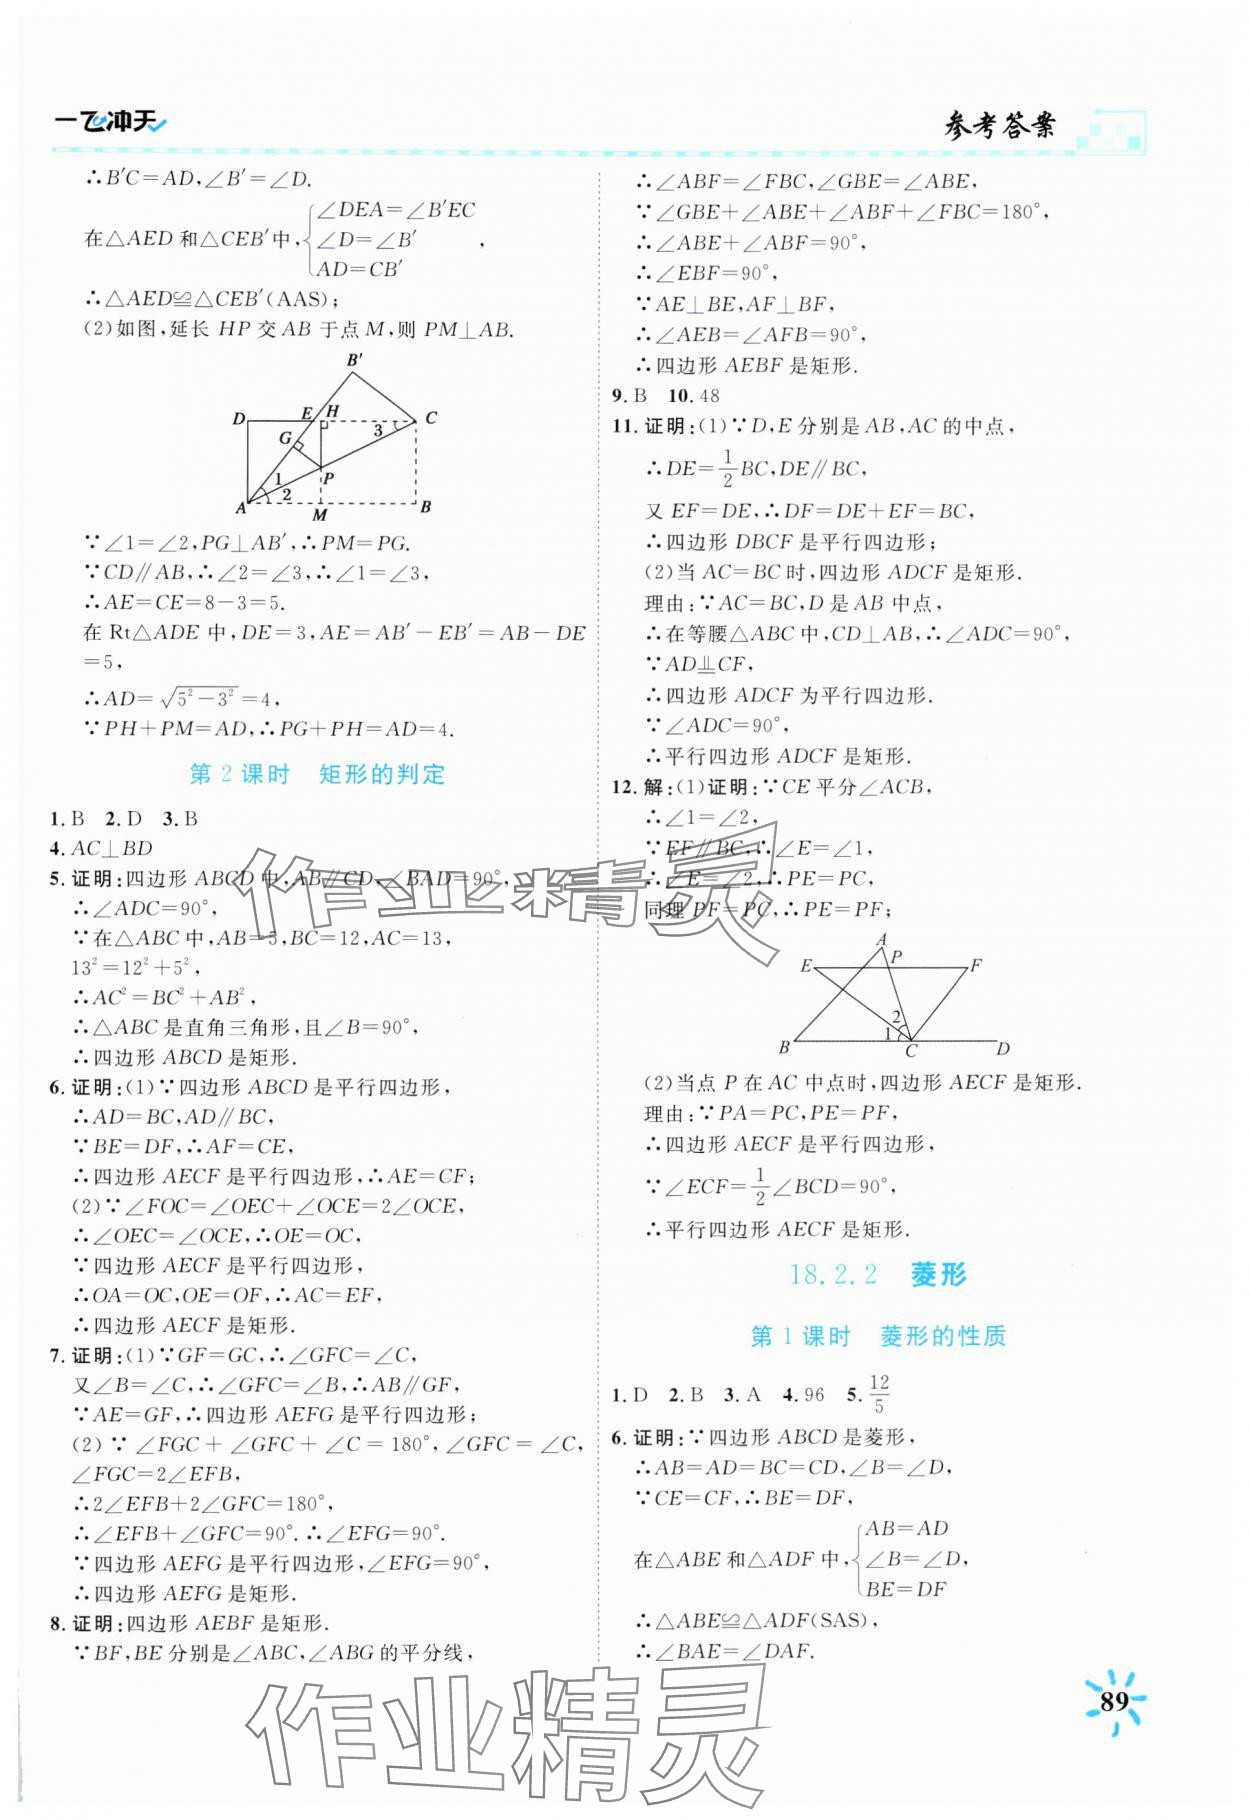 一飞冲天
参考答案
∴B′C=AD,∠B′=∠D.
在△AED和△CEB′中,{∠DEA=∠B′EC
∠D=∠B′,
AD=CB′
∴△AED≌△CEB′(AAS);
(2)如图,延长HP交AB于点M,则PM⊥AB.
B′
D E H C
G 3
1 P
2
A M B
∵∠1=∠2,PG⊥AB′,∴PM=PG.
∵CD∥AB,∴∠2=∠3,∴∠1=∠3,
∴AE=CE=8-3=5.
在Rt△ADE中,DE=3,AE=AB′-EB′=AB-DE
=5,
∴AD=√(5²-3²)=4,
∵PH+PM=AD,∴PG+PH=AD=4.
第2课时 矩形的判定
1.B 2.D 3.B
4.AC⊥BD
5.证明:四边形ABCD中,AB∥CD,∠BAD=90°,
∴∠ADC=90°,
∵在△ABC中,AB=5,BC=12,AC=13,
13²=12²+5²,
∴AC²=BC²+AB²,
∴△ABC是直角三角形,且∠B=90°,
∴四边形ABCD是矩形.
6.证明:(1)∵四边形ABCD是平行四边形,
∴AD=BC,AD∥BC,
∵BE=DF,∴AF=CE,
∴四边形AECF是平行四边形,∴AE=CF;
(2)∵∠FOC=∠OEC+∠OCE=2∠OCE,
∴∠OEC=∠OCE,∴OE=OC,
∵四边形AECF是平行四边形,
∴OA=OC,OE=OF,∴AC=EF,
∴四边形AECF是矩形.
7.证明:(1)∵GF=GC,∴∠GFC=∠C,
又∠B=∠C,∴∠GFC=∠B,∴AB∥GF,
∵AE=GF,∴四边形AEFG是平行四边形;
(2)∵∠FGC+∠GFC+∠C=180°,∠GFC=∠C,
∠FGC=2∠EFB,
∴2∠EFB+2∠GFC=180°,
∴∠EFB+∠GFC=90°.∴∠EFG=90°.
∵四边形AEFG是平行四边形,∠EFG=90°,
∴四边形AEFG是矩形.
8.证明:四边形AEBF是矩形.
∵BF,BE分别是∠ABC,∠ABG的平分线,
∴∠ABF=∠FBC,∠GBE=∠ABE,
∵∠GBE+∠ABE+∠ABF+∠FBC=180°,
∴∠ABE+∠ABF=90°,
∴∠EBF=90°,
∵AE⊥BE,AF⊥BF,
∴∠AEB=∠AFB=90°,
∴四边形AEBF是矩形.
9.B 10.48
11.证明:(1)∵D,E分别是AB,AC的中点,
∴DE=1/2BC,DE∥BC,
又EF=DE,∴DF=DE+EF=BC,
∴四边形DBCF是平行四边形;
(2)当AC=BC时,四边形ADCF是矩形.
理由:∵AC=BC,D是AB中点,
∴在等腰△ABC中,CD⊥AB,∴∠ADC=90°,
∵AD⫫CF,
∴四边形ADCF为平行四边形.
∵∠ADC=90°,
∴平行四边形ADCF是矩形.
12.解:(1)证明:∵CE平分∠ACB,
∴∠1=∠2,
∵EF∥BC,∴∠E=∠1,
∴∠E=∠2,∴PE=PC,
同理PF=PC,∴PE=PF;
A
E P F
2
1
B C D
(2)当点P在AC中点时,四边形AECF是矩形.
理由:∵PA=PC,PE=PF,
∴四边形AECF是平行四边形,
∵∠ECF=1/2∠BCD=90°,
∴平行四边形AECF是矩形.
18.2.2 菱形
第1课时 菱形的性质
1.D 2.B 3.A 4.96 5.12/5
6.证明:∵四边形ABCD是菱形,
∴AB=AD=BC=CD,∠B=∠D,
∵CE=CF,∴BE=DF,
在△ABE和△ADF中,{AB=AD
∠B=∠D,
BE=DF
∴△ABE≌△ADF(SAS),
∴∠BAE=∠DAF.
作业精灵
作业精灵
89